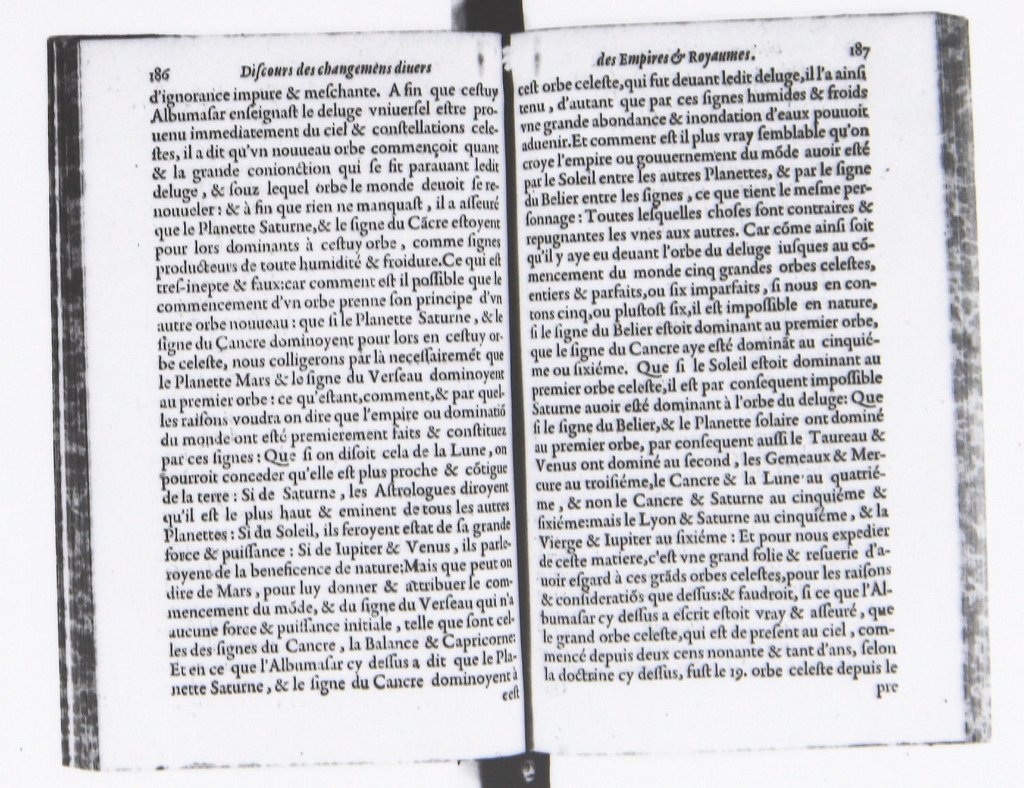 186 Diſcours des changemẽns diuers
d'ignorance impure & meſchante. A fin que ceſtuy
Albumaſar enſeignaſt le deluge vniuerſel eſtre pro-
uenu immediatement du ciel & conſtellations cele-
ſtes, il a dit qu'vn nouueau orbe commençoit quant
& la grande conionction qui ſe fit parauant ledit
deluge, & ſouz lequel orbe le monde deuoit ſe re-
nouueler: & à fin que rien ne manquaſt, il a aſſeuré
que le Planette Saturne,& le ſigne du Cãcre eſtoyent
pour lors dominants à ceſtuy orbe, comme ſignes
producteurs de toute humidité & froidure.Ce qui eſt
treſ-inepte & faux:car comment eſt il poſſible que le
commencement d'vn orbe prenne ſon principe d'vn
autre orbe nouueau: que ſi le Planette Saturne, & le
ſigne du Cancre dominoyent pour lors en ceſtuy or-
be celeſte, nous colligerons par là neceſſairemét que
le Planette Mars & le ſigne du Verſeau dominoyent
au premier orbe: ce qu'eſtant,comment,& par quel-
les raiſons voudra on dire que l'empire ou dominatiõ
du monde ont eſté premierement faits & conſtituez
par ces ſignes: Que ſi on diſoit cela de la Lune, on
pourroit conceder qu'elle eſt plus proche & cõtigue
de la terre: Si de Saturne, les Aſtrologues diroyent
qu'il eſt le plus haut & eminent de tous les autres
Planettes: Si du Soleil, ils feroyent eſtat de ſa grande
force & puiſſance: Si de Iupiter & Venus, ils parle-
royent de la beneficence de nature:Mais que peut on
dire de Mars, pour luy donner & attribuer le com-
mencement du mõde, & du ſigne du Verſeau qui n'a
aucune force & puiſſance initiale, telle que ſont cel-
les des ſignes du Cancre, la Balance & Capricorne:
Et en ce que l'Albumaſar cy deſſus a dit que le Pla-
nette Saturne, & le ſigne du Cancre dominoyent à
ceſt
des Empires & Royaumes. 187
ceſt orbe celeſte,qui fut deuant ledit deluge,il l'a ainſi
tenu, d'autant que par ces ſignes humides & froids
vne grande abondance & inondation d'eaux pouuoit
aduenir.Et comment eſt il plus vray ſemblable qu'on
croye l'empire ou gouuernement du mõde auoir eſté
par le Soleil entre les autres Planettes, & par le ſigne
du Belier entre les ſignes, ce que tient le meſme per-
ſonnage: Toutes leſquelles choſes ſont contraires &
repugnantes les vnes aux autres. Car cõme ainſi ſoit
qu'il y aye eu deuant l'orbe du deluge iuſques au cõ-
mencement du monde cinq grandes orbes celeſtes,
entiers & parfaits,ou ſix imparfaits, ſi nous en con-
tons cinq,ou pluſtoſt ſix,il eſt impoſſible en nature,
ſi le ſigne du Belier eſtoit dominant au premier orbe,
que le ſigne du Cancre aye eſté dominãt au cinquié-
me ou ſixiéme. Que ſi le Soleil eſtoit dominant au
premier orbe celeſte,il eſt par conſequent impoſſible
Saturne auoir eſté dominant à l'orbe du deluge: Que
ſi le ſigne du Belier,& le Planette ſolaire ont dominé
au premier orbe, par conſequent auſſi le Taureau &
Venus ont dominé au ſecond, les Gemeaux & Mer-
cure au troiſiéme,le Cancre & la Lune au quatrié-
me, & non le Cancre & Saturne au cinquiéme &
ſixiéme:mais le Lyon & Saturne au cinquiéme, & la
Vierge & Iupiter au ſixiéme: Et pour nous expedier
de ceſte matiere,c'eſt vne grand folie & reſuerie d'a-
uoir eſgard à ces grãds orbes celeſtes,pour les raiſons
& conſideratiõs que deſſus:& faudroit, ſi ce que l'Al-
bumaſar cy deſſus a eſcrit eſtoit vray & aſſeuré, que
le grand orbe celeſte,qui eſt de preſent au ciel, com-
mencé depuis deux cens nonante & tant d'ans, ſelon
la doctrine cy deſſus, fuſt le 19. orbe celeſte depuis le
pre